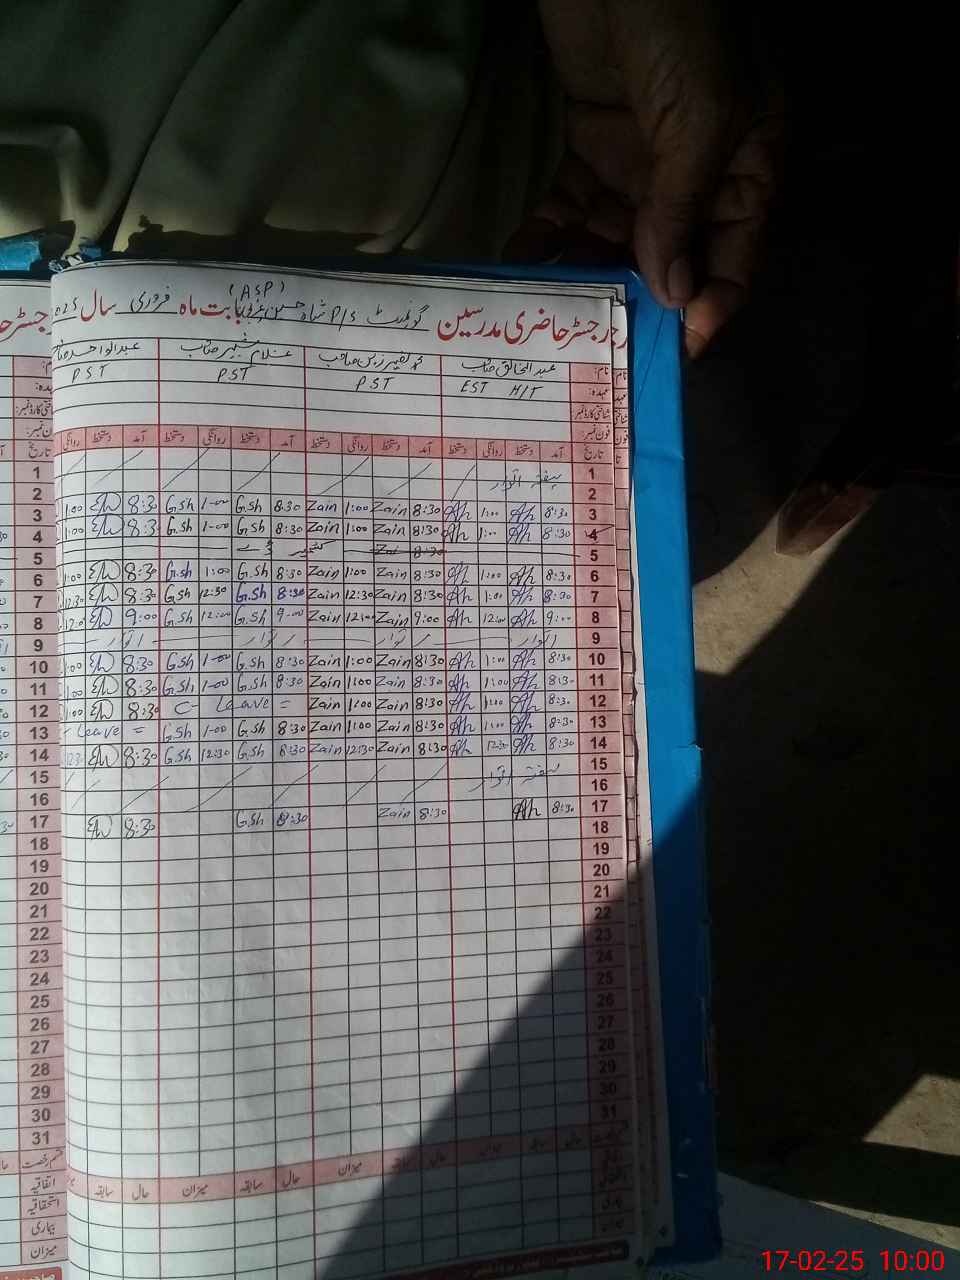 (ASP)
رجسٹر حاضری مدرسین گورنمنٹ P/S شاہ حسین بابت ماہ فروری سال 2025
نام: عبدالخالق صاحب غلام شبیر صاحب عبدالواحد
عہدہ: EST H/T PST PST PST
شناختی کارڈ نمبر:
فون نمبر:
تاریخ آمد دستخط روانگی دستخط آمد دستخط روانگی دستخط آمد دستخط روانگی دستخط آمد دستخط روانگی
1 ہفتہ اتوار
2
3 8:30 Ah 1:00 Ah 8:30 Zain 1:00 Zain 8:30 G.sh 1-00 G.sh 8:30 1:00
4 8:30 Ah 1:00 Ah 8:30 Zain 1:00 Zain 8:30 G.sh 1-00 G.sh 8:30 1:00
5 8:30 کشمیر ڈے
6 8:30 Ah 1:00 Ah 8:30 Zain 1:00 Zain 8:30 G.sh 1:00 G.sh 8:30 1:00
7 8:30 Ah 1:00 Ah 8:30 Zain 12:30 Zain 8:30 G.sh 12:30 G.sh 8:30 12:30
8 9:00 Ah 12:00 Ah 9:00 Zain 12:00 Zain 9:00 G.sh 12:00 G.sh 9:00 12:0
9 اتوار اتوار اتوار اتوار
10 8:30 Ah 1:00 Ah 8:30 Zain 1:00 Zain 8:30 G.sh 1-00 G.sh 8:30 1:00
11 8:30 Ah 1:00 Ah 8:30 Zain 1:00 Zain 8:30 G.sh 1-00 G.sh 8:30 1:00
12 8:30 Ah 1:00 Ah 8:30 Zain 1:00 Zain Leave = 8:30 1:00
13 8:30 Ah 1:00 Ah 8:30 Zain 1:00 Zain 8:30 G.sh 1-00 G.sh Leave =
14 8:30 Ah 12:30 Ah 8:30 Zain 12:30 Zain 8:30 G.sh 12:30 G.sh 8:30 12:30
15 ہفتہ اتوار
16
17 8:30 Ah 8:30 Zain 8:30 G.sh 8:30
18
19
20
21
22
23
24
25
26
27
28
29
30
31
قسم رخصت حال سابقہ میزان حال سابقہ میزان حال سابقہ میزان حال سابقہ
اتفاقیہ
استحقاقیہ
بیماری
میزان
17-02-25 10:00